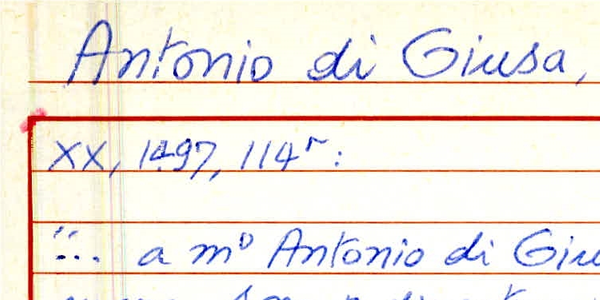 Antonio di Giusa,
XX, 1497, 114r:
"... a mo Antonio di Giu